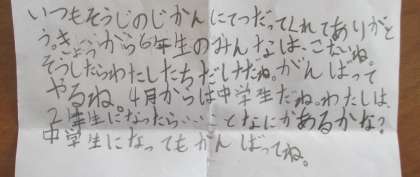 いつもそうじのじかんにてつだってくれてありがと
う。きょうから6年生のみんなは、こないね。
そうしたらわたしたちだけだね。がんばって
やるね。4月からは中学生だね。わたしは、
2年生になったら‥‥‥となにがあるかな?
中学生になってもがんばってね。